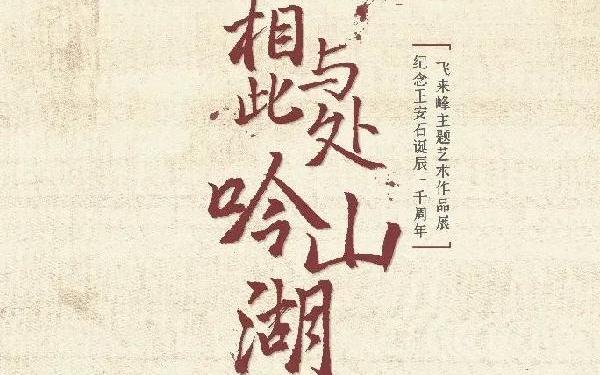 相与
此处
吟山
湖
飞来峰主题艺术作品展
纪念王安石诞辰一千周年